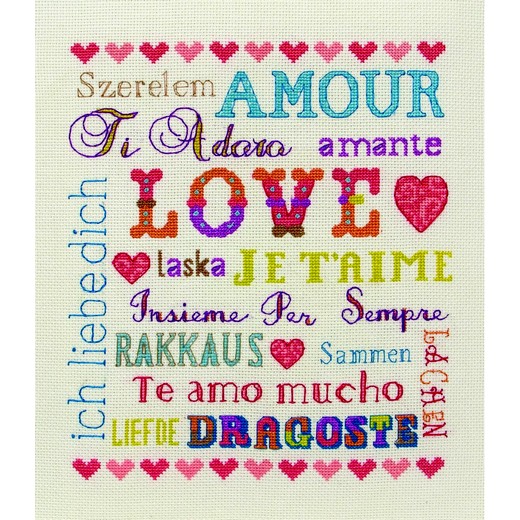 Szerelem AMOUR
Ti Adoro amante
LOVE
ich liebe dich
laska JE T'AIME
Insieme Per Sempre
RAKKAUS Sammen
LACHEN
Te amo mucho
LIEFDE DRAGOSTE